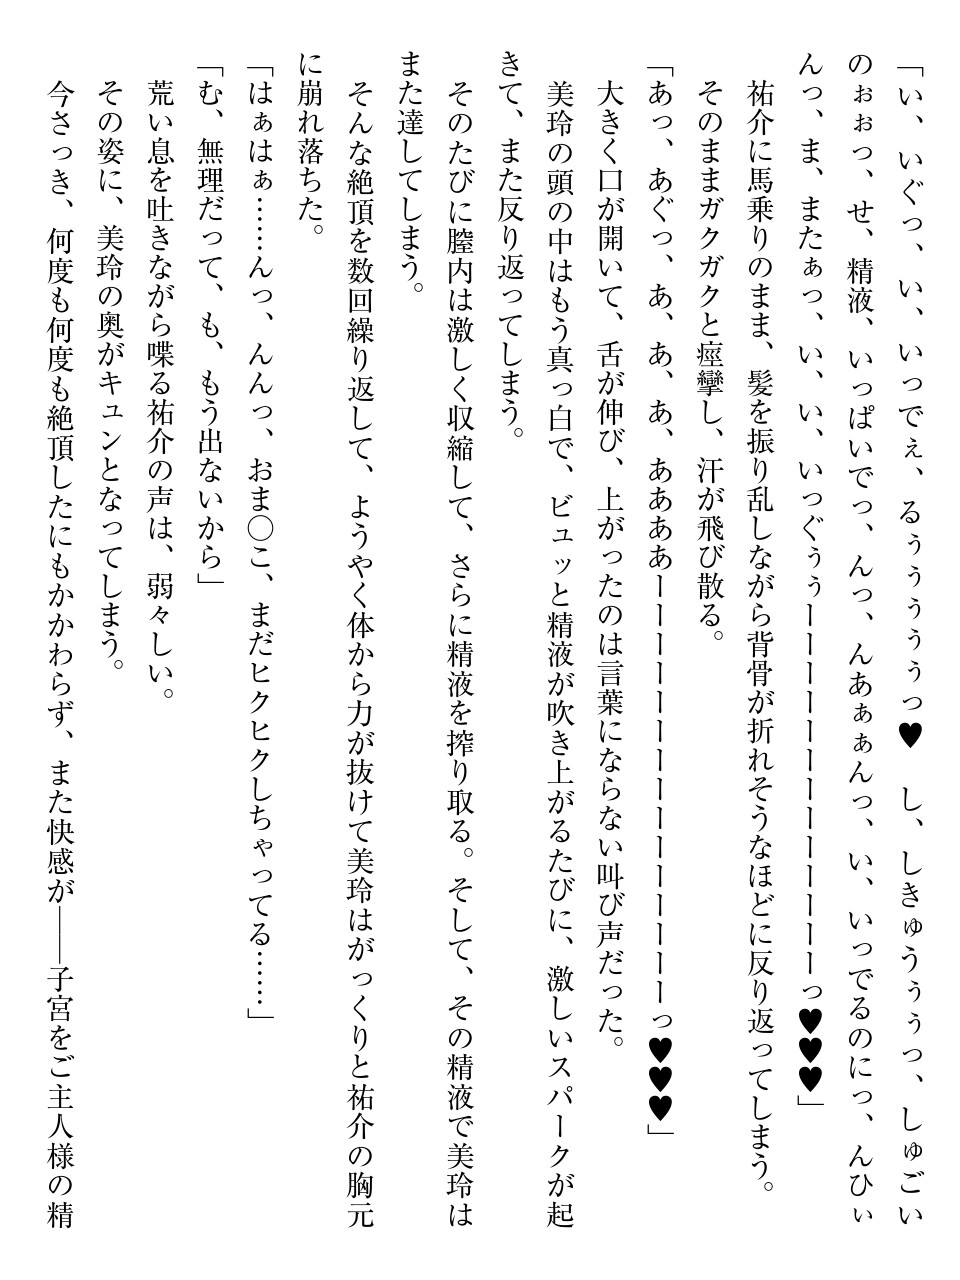 「い、いぐっ、い、いっでぇ、るぅぅぅぅっ♥　し、しきゅうぅぅっ、しゅごい
のぉぉっ、せ、精液、いっぱいでっ、んっ、んあぁぁんっ、い、いっでるのにっ、んひぃ
んっ、ま、またぁっ、い、い、いっぐぅぅーーーーーーーーーーーーーっ♥♥♥」
　祐介に馬乗りのまま、髪を振り乱しながら背骨が折れそうなほどに反り返ってしまう。
　そのままガクガクと痙攣し、汗が飛び散る。
「あっ、あぐっ、あ、あ、あ、ああああーーーーーーーーーーーーーーーっ♥♥♥」
　大きく口が開いて、舌が伸び、上がったのは言葉にならない叫び声だった。
　美玲の頭の中はもう真っ白で、ビュッと精液が吹き上がるたびに、激しいスパークが起
きて、また反り返ってしまう。
　そのたびに膣内は激しく収縮して、さらに精液を搾り取る。そして、その精液で美玲は
また達してしまう。
　そんな絶頂を数回繰り返して、ようやく体から力が抜けて美玲はがっくりと祐介の胸元
に崩れ落ちた。
「はぁはぁ……んっ、んんっ、おま〇こ、まだヒクヒクしちゃってる……」
「む、無理だって、も、もう出ないから」
　荒い息を吐きながら喋る祐介の声は、弱々しい。
　その姿に、美玲の奥がキュンとなってしまう。
　今さっき、何度も何度も絶頂したにもかかわらず、また快感が――子宮をご主人様の精